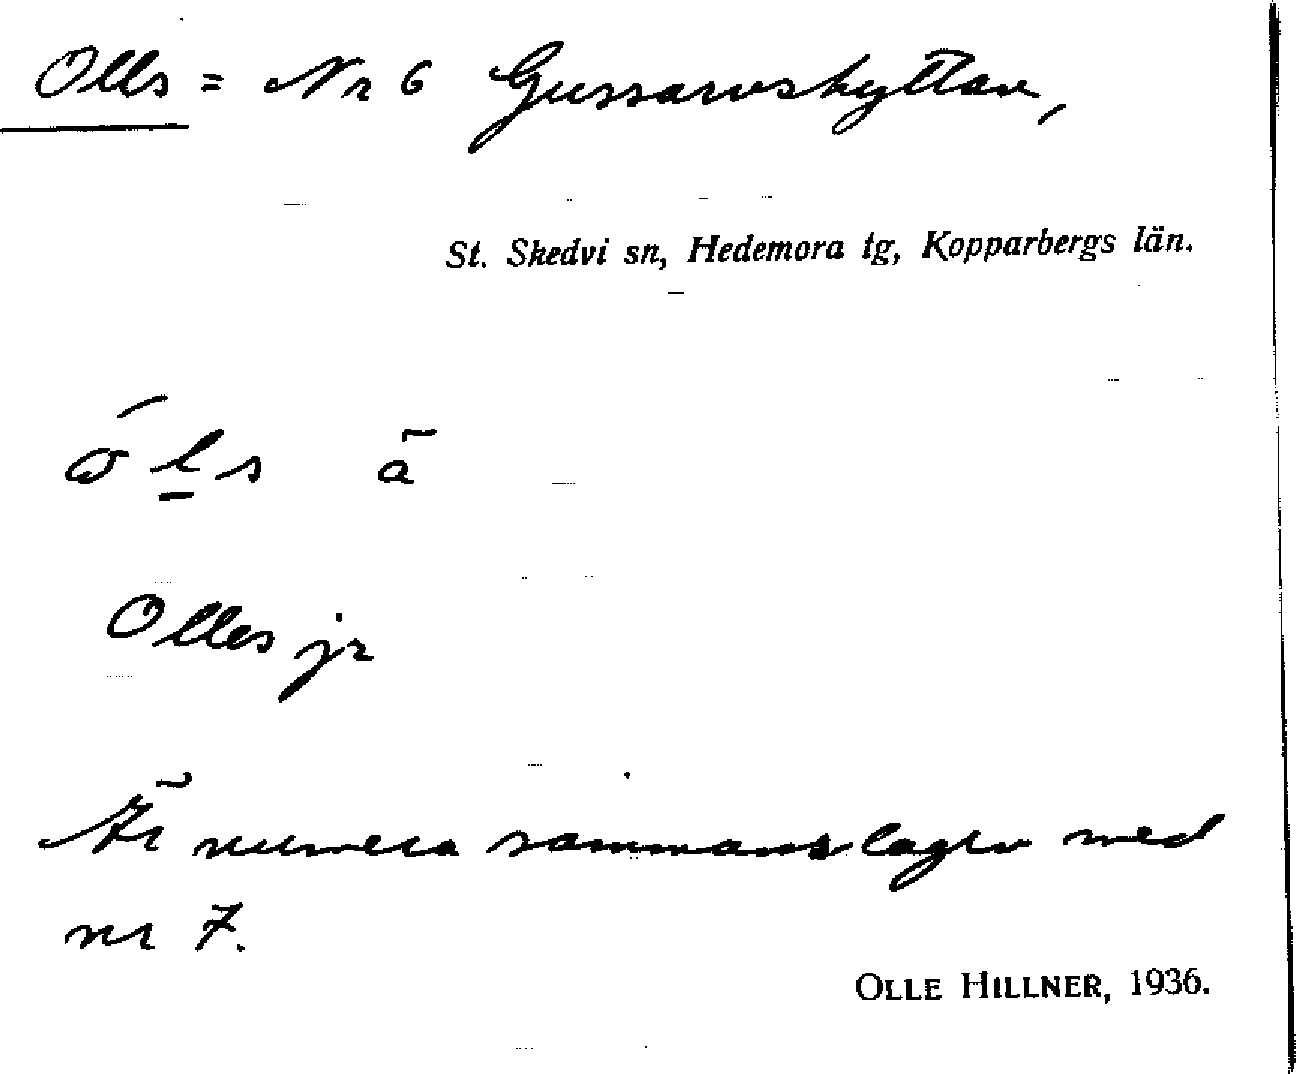 Olls = Nr 6 Gussarvshyttan,
St. Skedvi sn, Hedemora tg, Kopparbergs län.
ó̄l̲s ā
Olles jr
Är numera sammanslagen med
nr 7.
OLLE HILLNER, 1936.